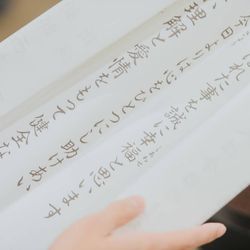 われた事を誠に幸福と思います
今日よりは心をひとつにし、助けあい
理解と愛情をもって健全な